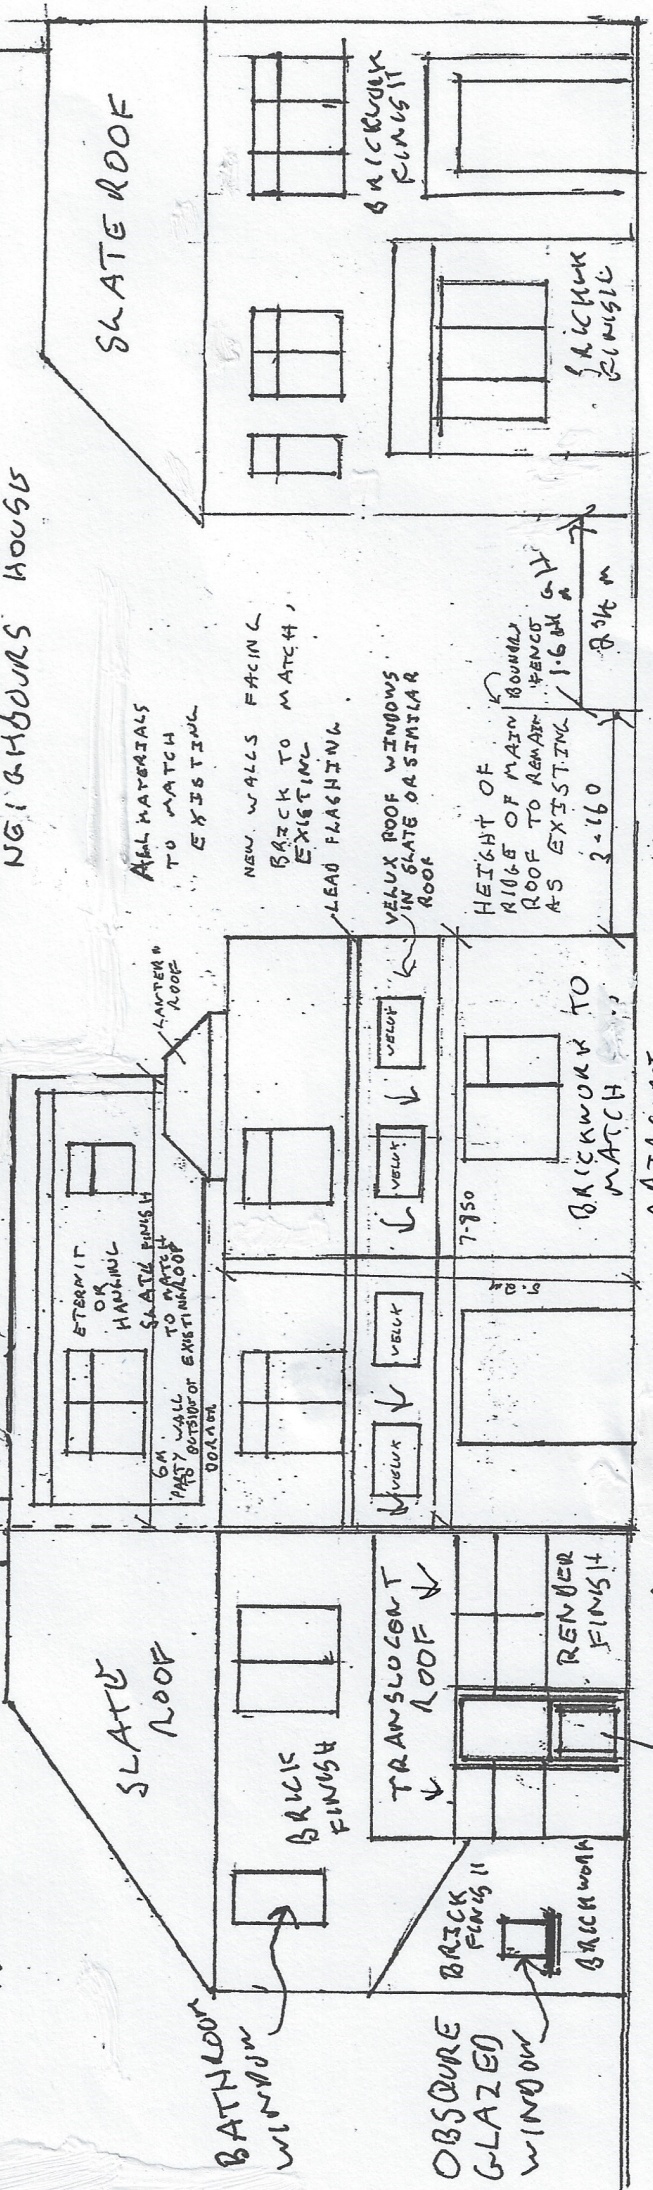 NEIGHBOURS HOUSE
SLATE ROOF
BRICKWORK
FINISH
BRICKWK
FINISH
ALL MATERIALS
TO MATCH
EXISTING
NEW WALLS FACING
BRICK TO MATCH,
EXISTING
LEAD FLASHING
VELUX ROOF WINDOWS
IN SLATE OR SIMILAR
ROOF
HEIGHT OF
RIDGE OF MAIN
ROOF TO REMAIN
AS EXISTING
BOUNDRY
FENCE
3-160
LANTERN
ROOF
ETERNIT
OR
HANGING
SLATE FINISH
TO MATCH
EXISTING ROOF
6M
PARTY WALL
TO OUTSIDE OF
DORMER
VELUX
VELUX
VELUX
VELUX
7-850
BRICKWORK TO
MATCH
SLATE
ROOF
BRICK
FINISH
TRANSLUCENT
ROOF
RENDER
FINISH
BRICK
FINISH
BRICKWORK
BATHROOM
WINDOW
OBSQURE
GLAZED
WINDOW